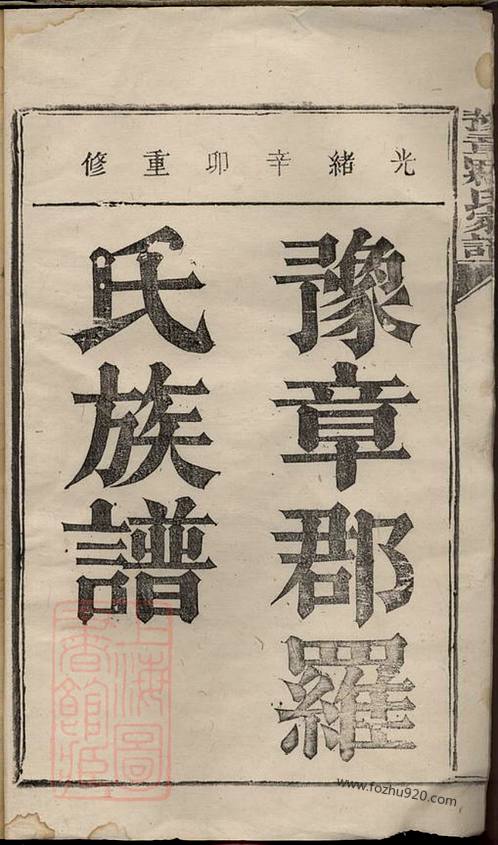 光緒辛卯重修
豫章郡羅
氏族譜
豫章羅氏家譜
上海圖
書館藏
www.fozhu920.com